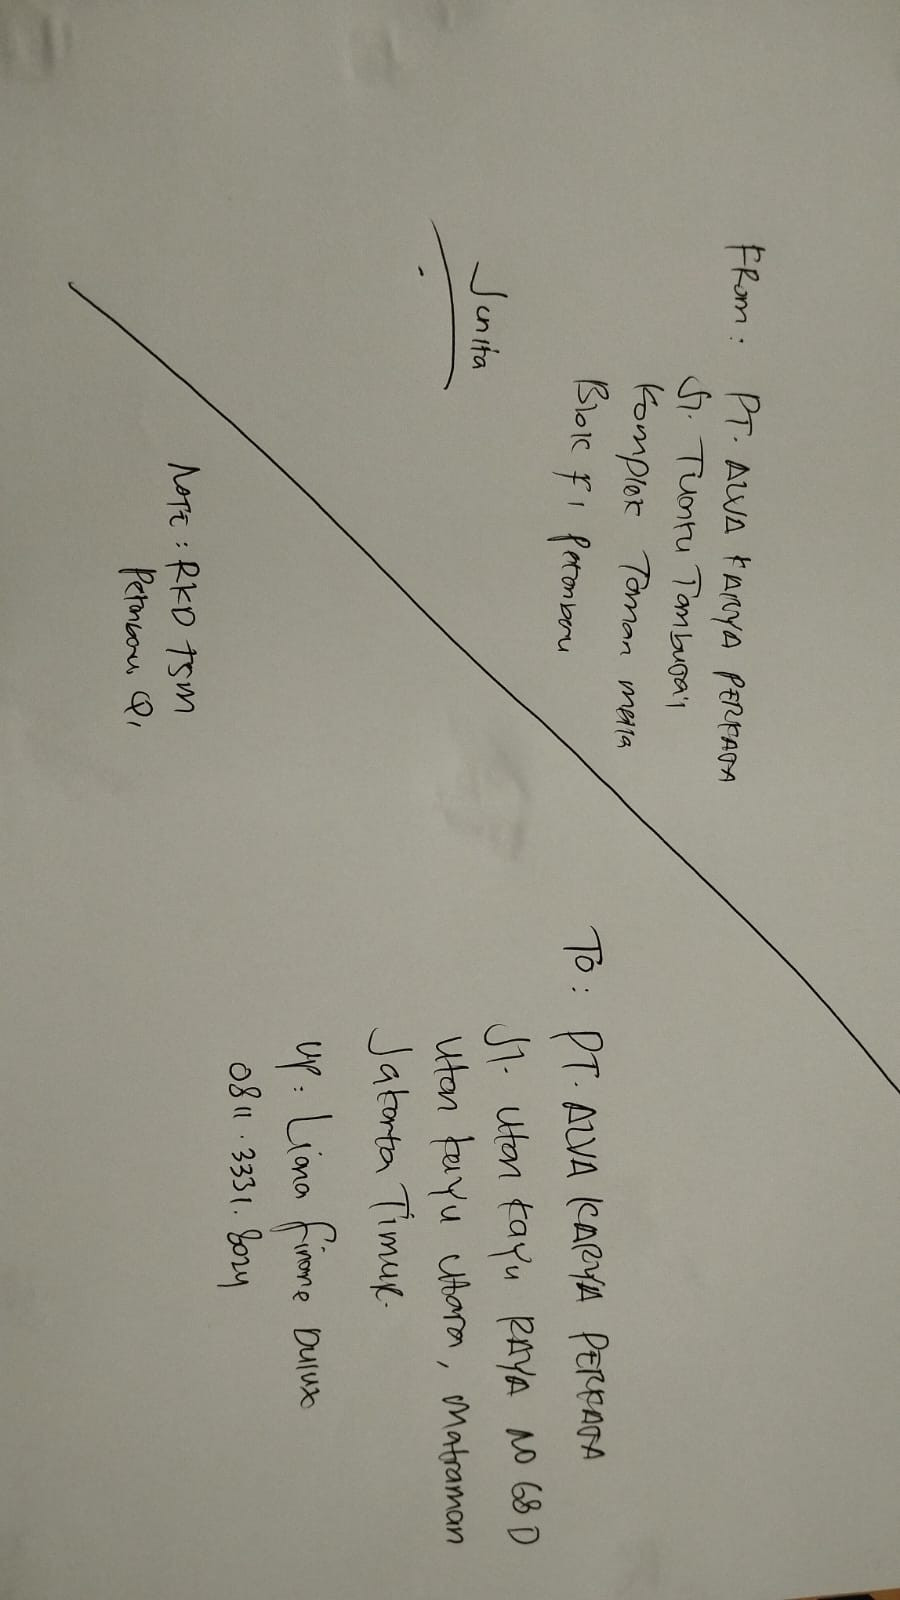 FROM : PT. ALVA KARYA PERKASA
Jl. Tuanku Tambusai
Komplek Taman mella
Blok F1 Pekanbaru
Junita
To : PT. ALVA KARYA PERKASA
Jl. Utan Kayu RAYA NO 68 D
Utan Kayu Utara, Matraman
Jakarta TIMUR.
UP : Liana Finane Dulux
0811.3331.8024
NOTE : RKD TSM
Pekanbaru Q1